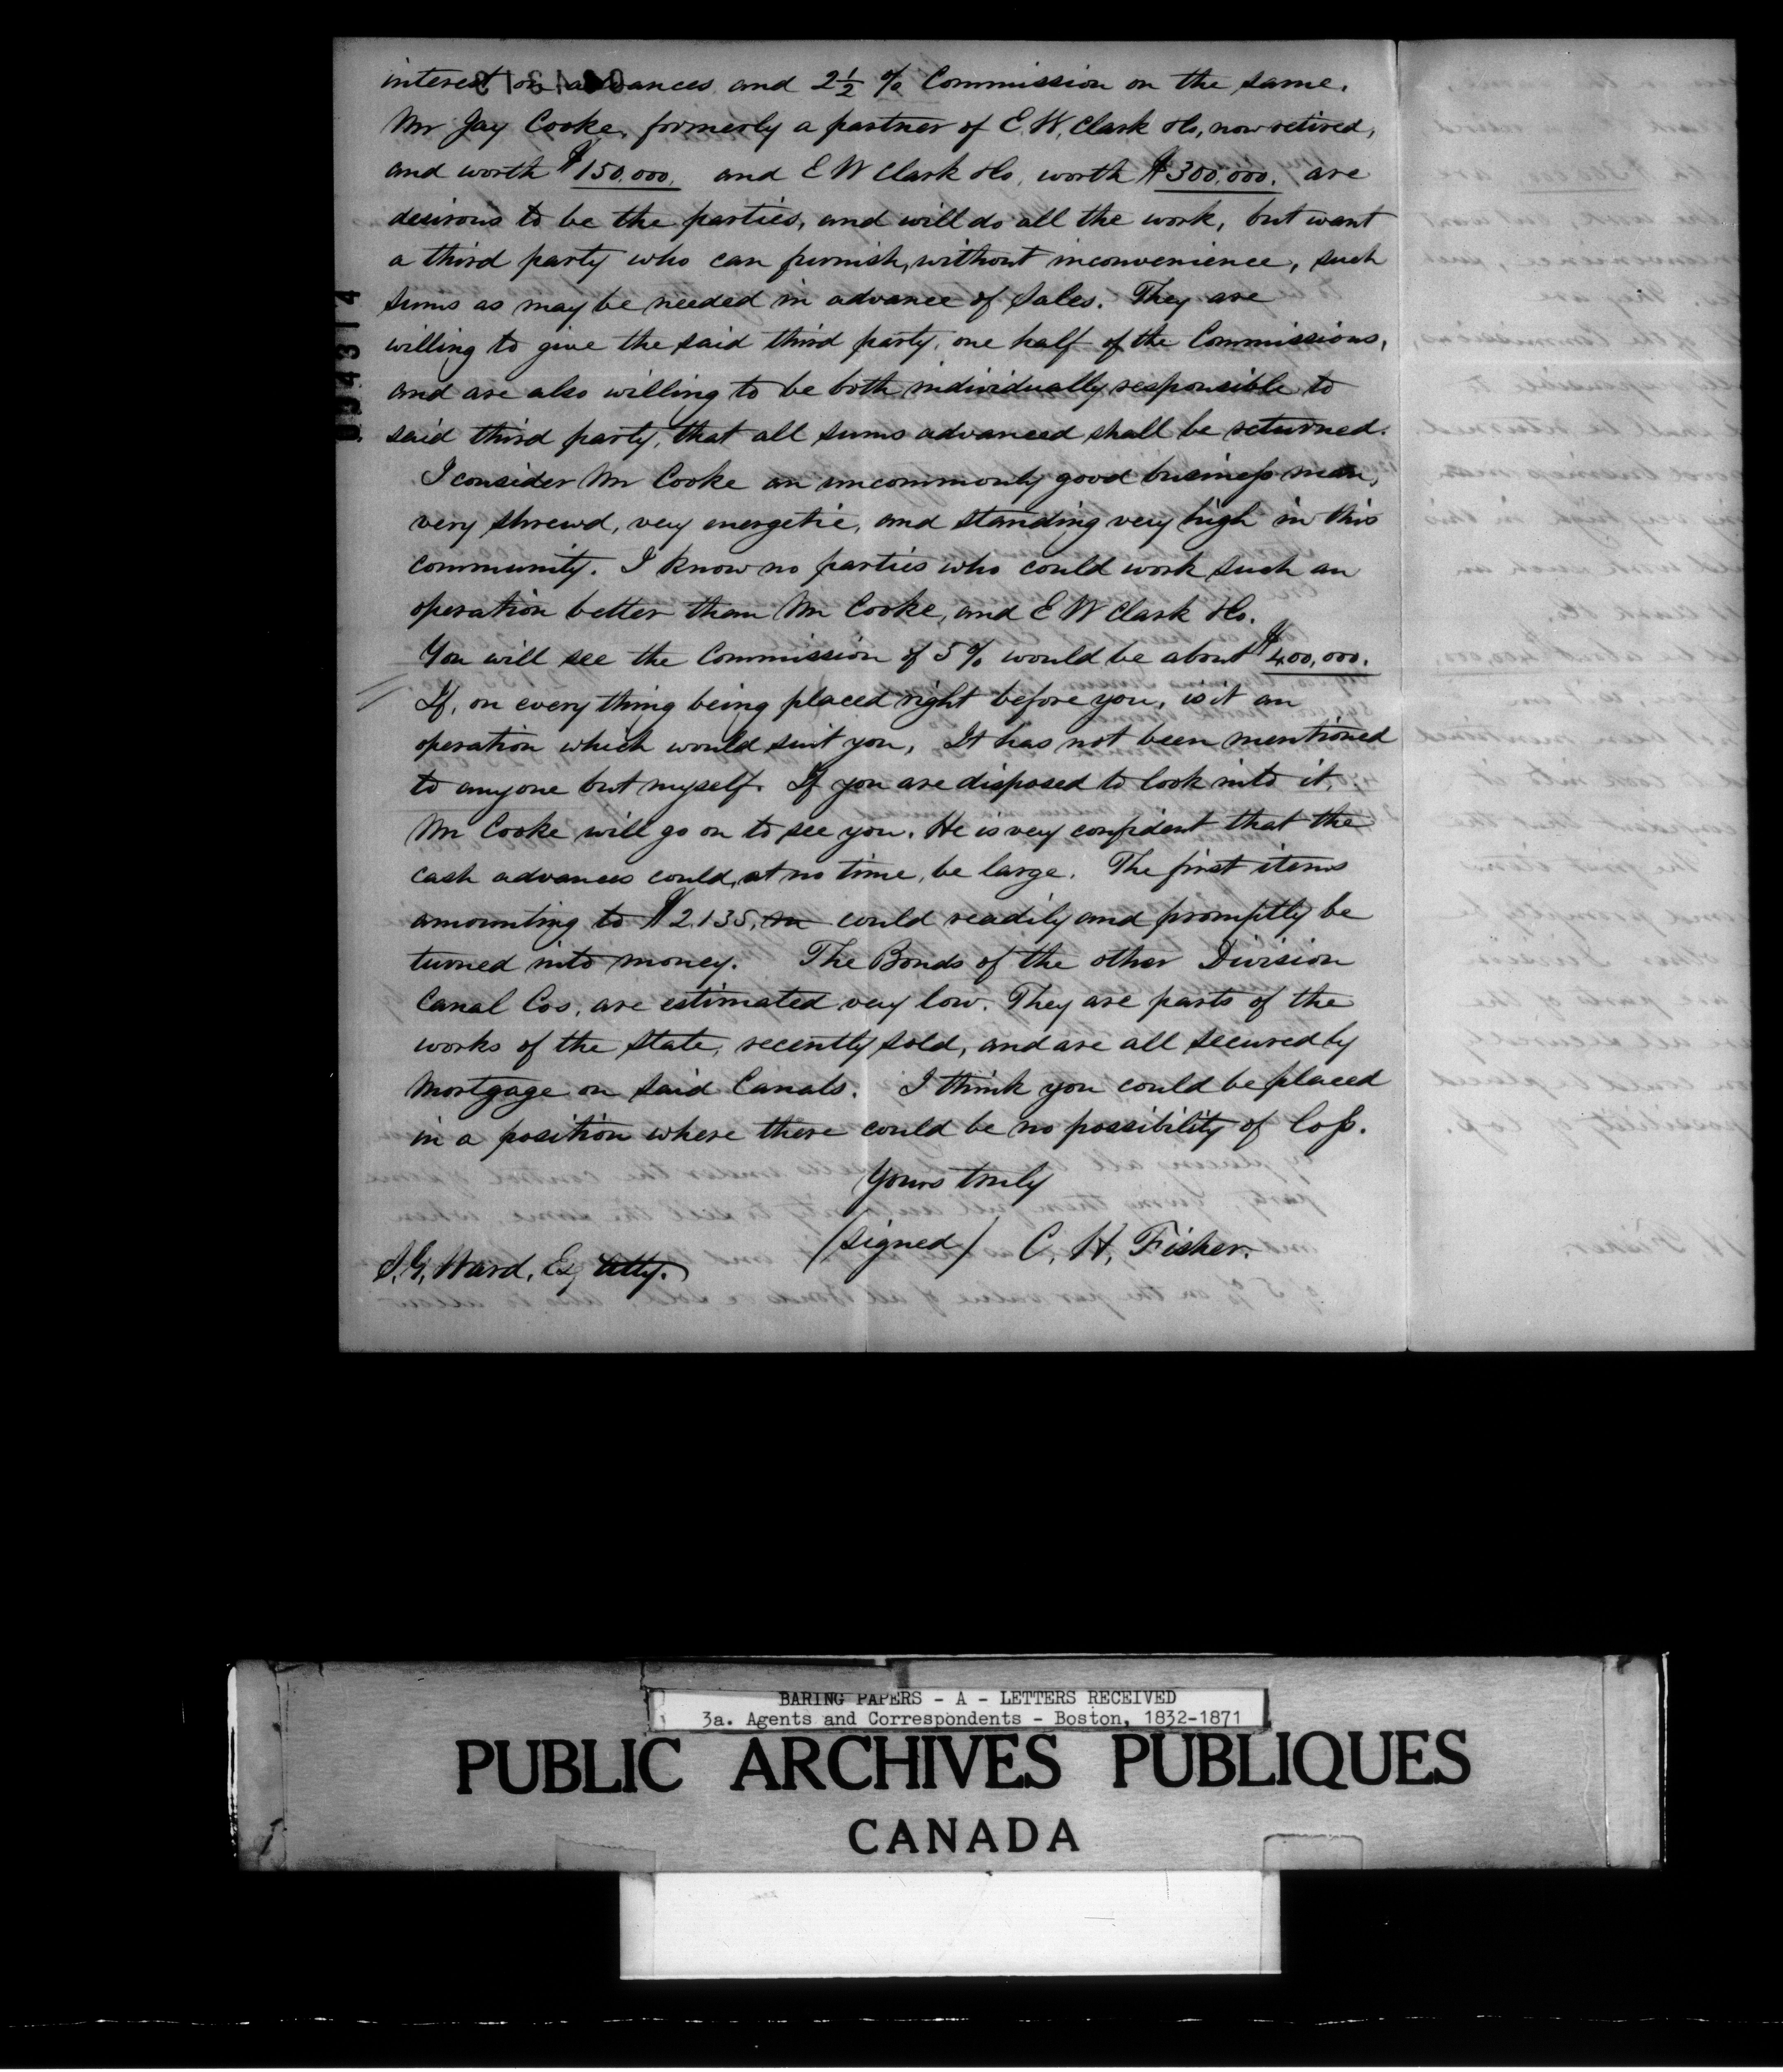 interest on advances and 2½ % Commission on the same.
Mr Jay Cooke, formerly a partner of E. W. Clark & Co, now retired,
and worth $150,000, and E W Clark & Co, worth $300,000. are
desirous to be the parties, and will do all the work, but want
a third party who can furnish, without inconvenience, such
sums as may be needed in advance of Sales. They are
willing to give the said third party, one half of the Commissions,
and are also willing to be both individually responsible to
said third party, that all sums advanced shall be returned.
I consider Mr Cooke an uncommonly good business man,
very shrewd, very energetic, and standing very high in this
community. I know no parties who could work such an
operation better than Mr Cooke, and E W Clark & Co.
You will see the Commission of 5% would be about $400,000.
If, on every thing being placed right before you, is it an
operation which would suit you, It has not been mentioned
to anyone but myself. If you are disposed to look into it,
Mr Cooke will go on to see you. He is very confident that the
cash advances could, at no time, be large. The first items
amounting to $2.135, m could readily and promptly be
turned into money. The Bonds of the other Division
Canal Cos, are estimated very low. They are parts of the
works of the State, recently sold, and are all secured by
Mortgage on said Canals. I think you could be placed
in a position where there could be no possibility of loss.
Yours truly
(signed) C. H. Fisher.
S. G. Ward, Esq Atty.
004314
BARING PAPERS - A - LETTERS RECEIVED
3a. Agents and Correspondents - Boston, 1832-1871
PUBLIC ARCHIVES PUBLIQUES
CANADA